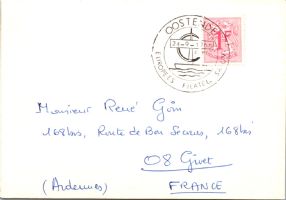 OOSTENDE
24-9-1
EUROPEES FILATEL
Monsieur René
168bis, Route de Bon Secours, 168bis
08 Givet
(Ardennes) FRANCE